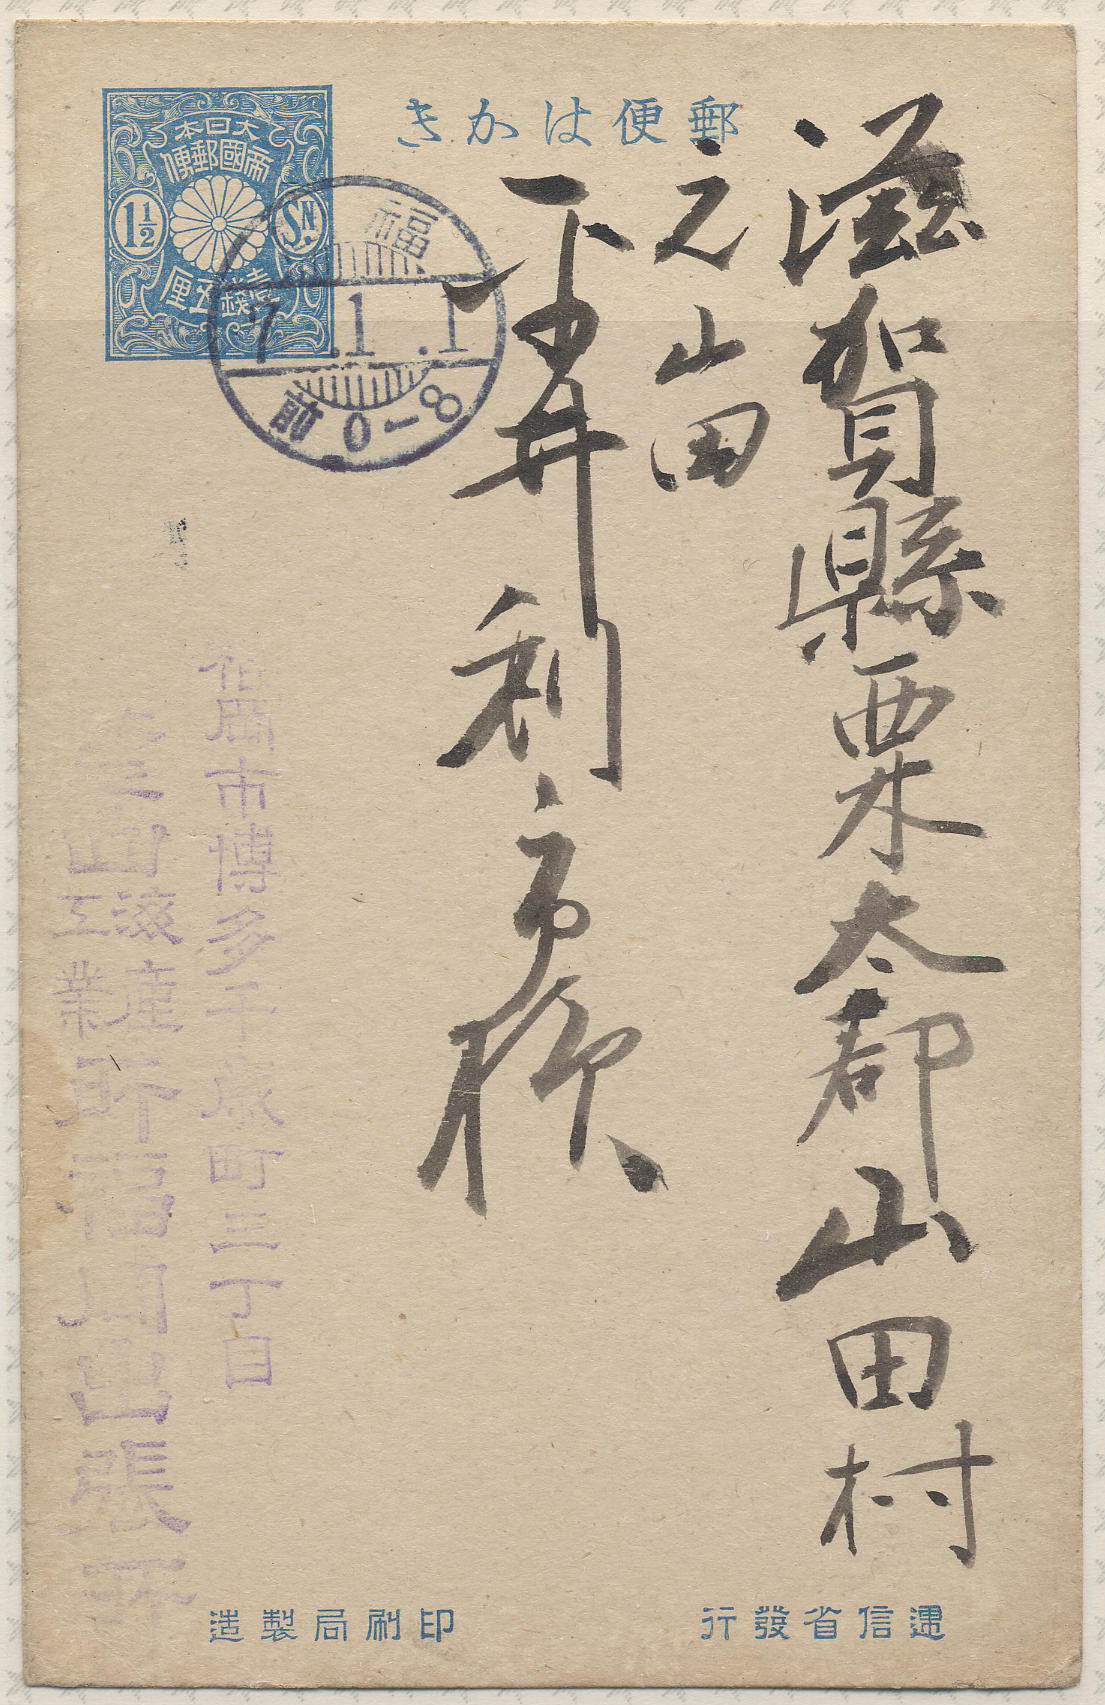 郵便はかき
大日本
帝國郵便
1½
SN.
壹錢五厘
福
7.1.1
前0-8
滋賀縣栗太郡山田村
元山田
下中井利市様
福岡市博多千歳町三丁目
山
滋産
工業
所福岡出張所
遞信省發行
印刷局製造